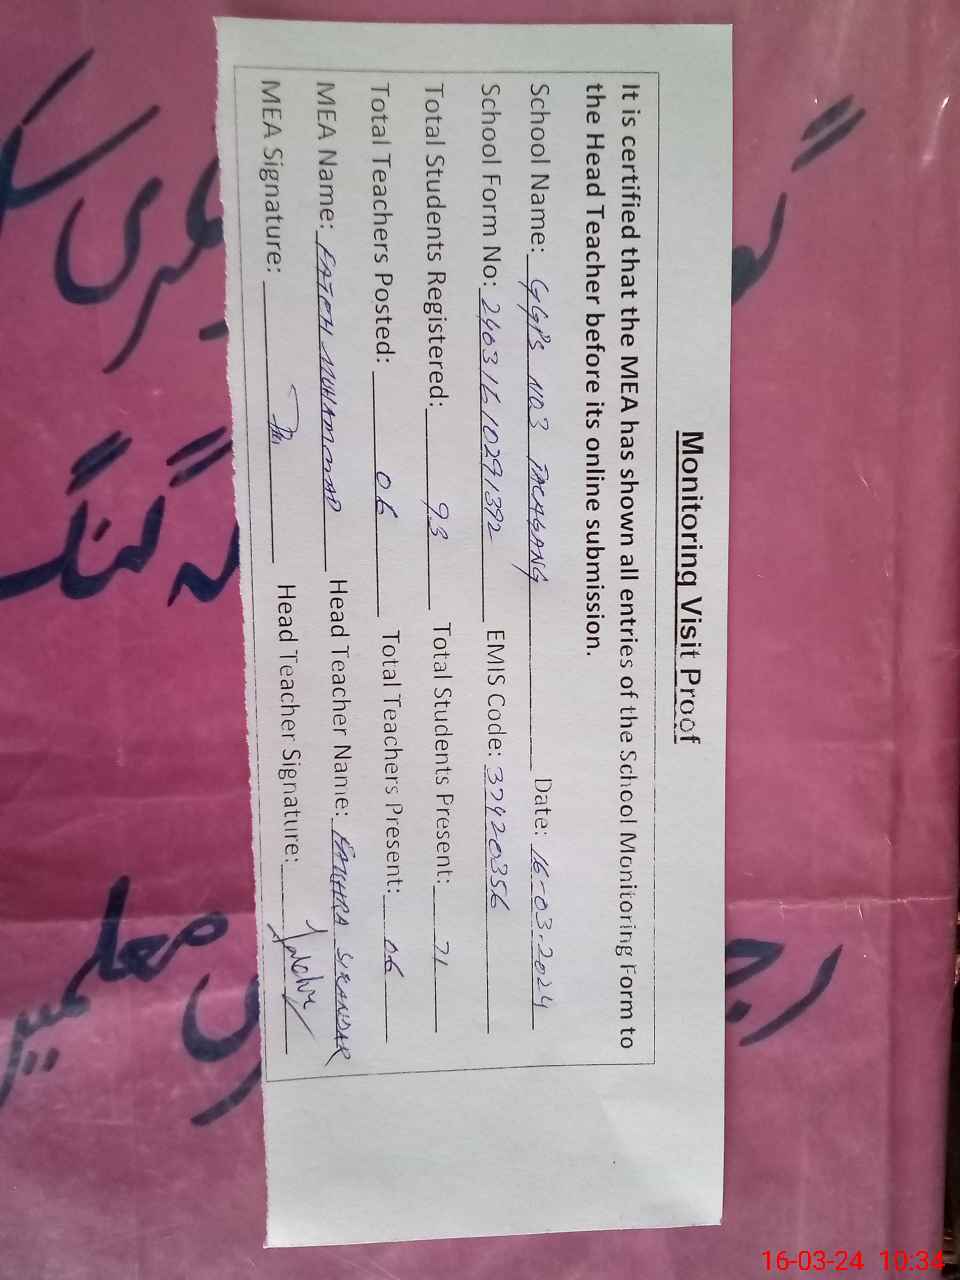 Monitoring Visit Proof
It is certified that the MEA has shown all entries of the School Monitoring Form to
the Head Teacher before its online submission.
School Name: GGPS NO3 TALAGANG Date: 16-03-2024
School Form No: 24031610291392 EMIS Code: 37420356
Total Students Registered: 93 Total Students Present: 71
Total Teachers Posted: 06 Total Teachers Present: 06
MEA Name: FATEH MUHAMMAD Head Teacher Name: FAKHRA SIKANDAR
MEA Signature: Head Teacher Signature:
16-03-24 10:34